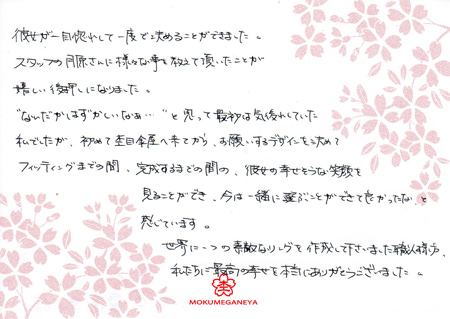 彼女が一目惚れして一度で決めることができました。
スタッフの月原さんに様々な事を教えて頂いたことが
嬉しい後押しになりました。
"なんだかはずかしいなぁ…"と思って最初は気後れしていた
私でしたが、初めて杢目金屋へ来てから、お願いするデザインを決めて
フィッティングまでの間、完成するまでの間の、彼女の幸せそうな笑顔を
見ることができ、今は一緒に選ぶことができて良かったな、と
感じています。
世界に一つの素敵なリングを作成して下さいました職人様方、
私たちに最高の幸せを本当にありがとうございました。
MOKUMEGANEYA